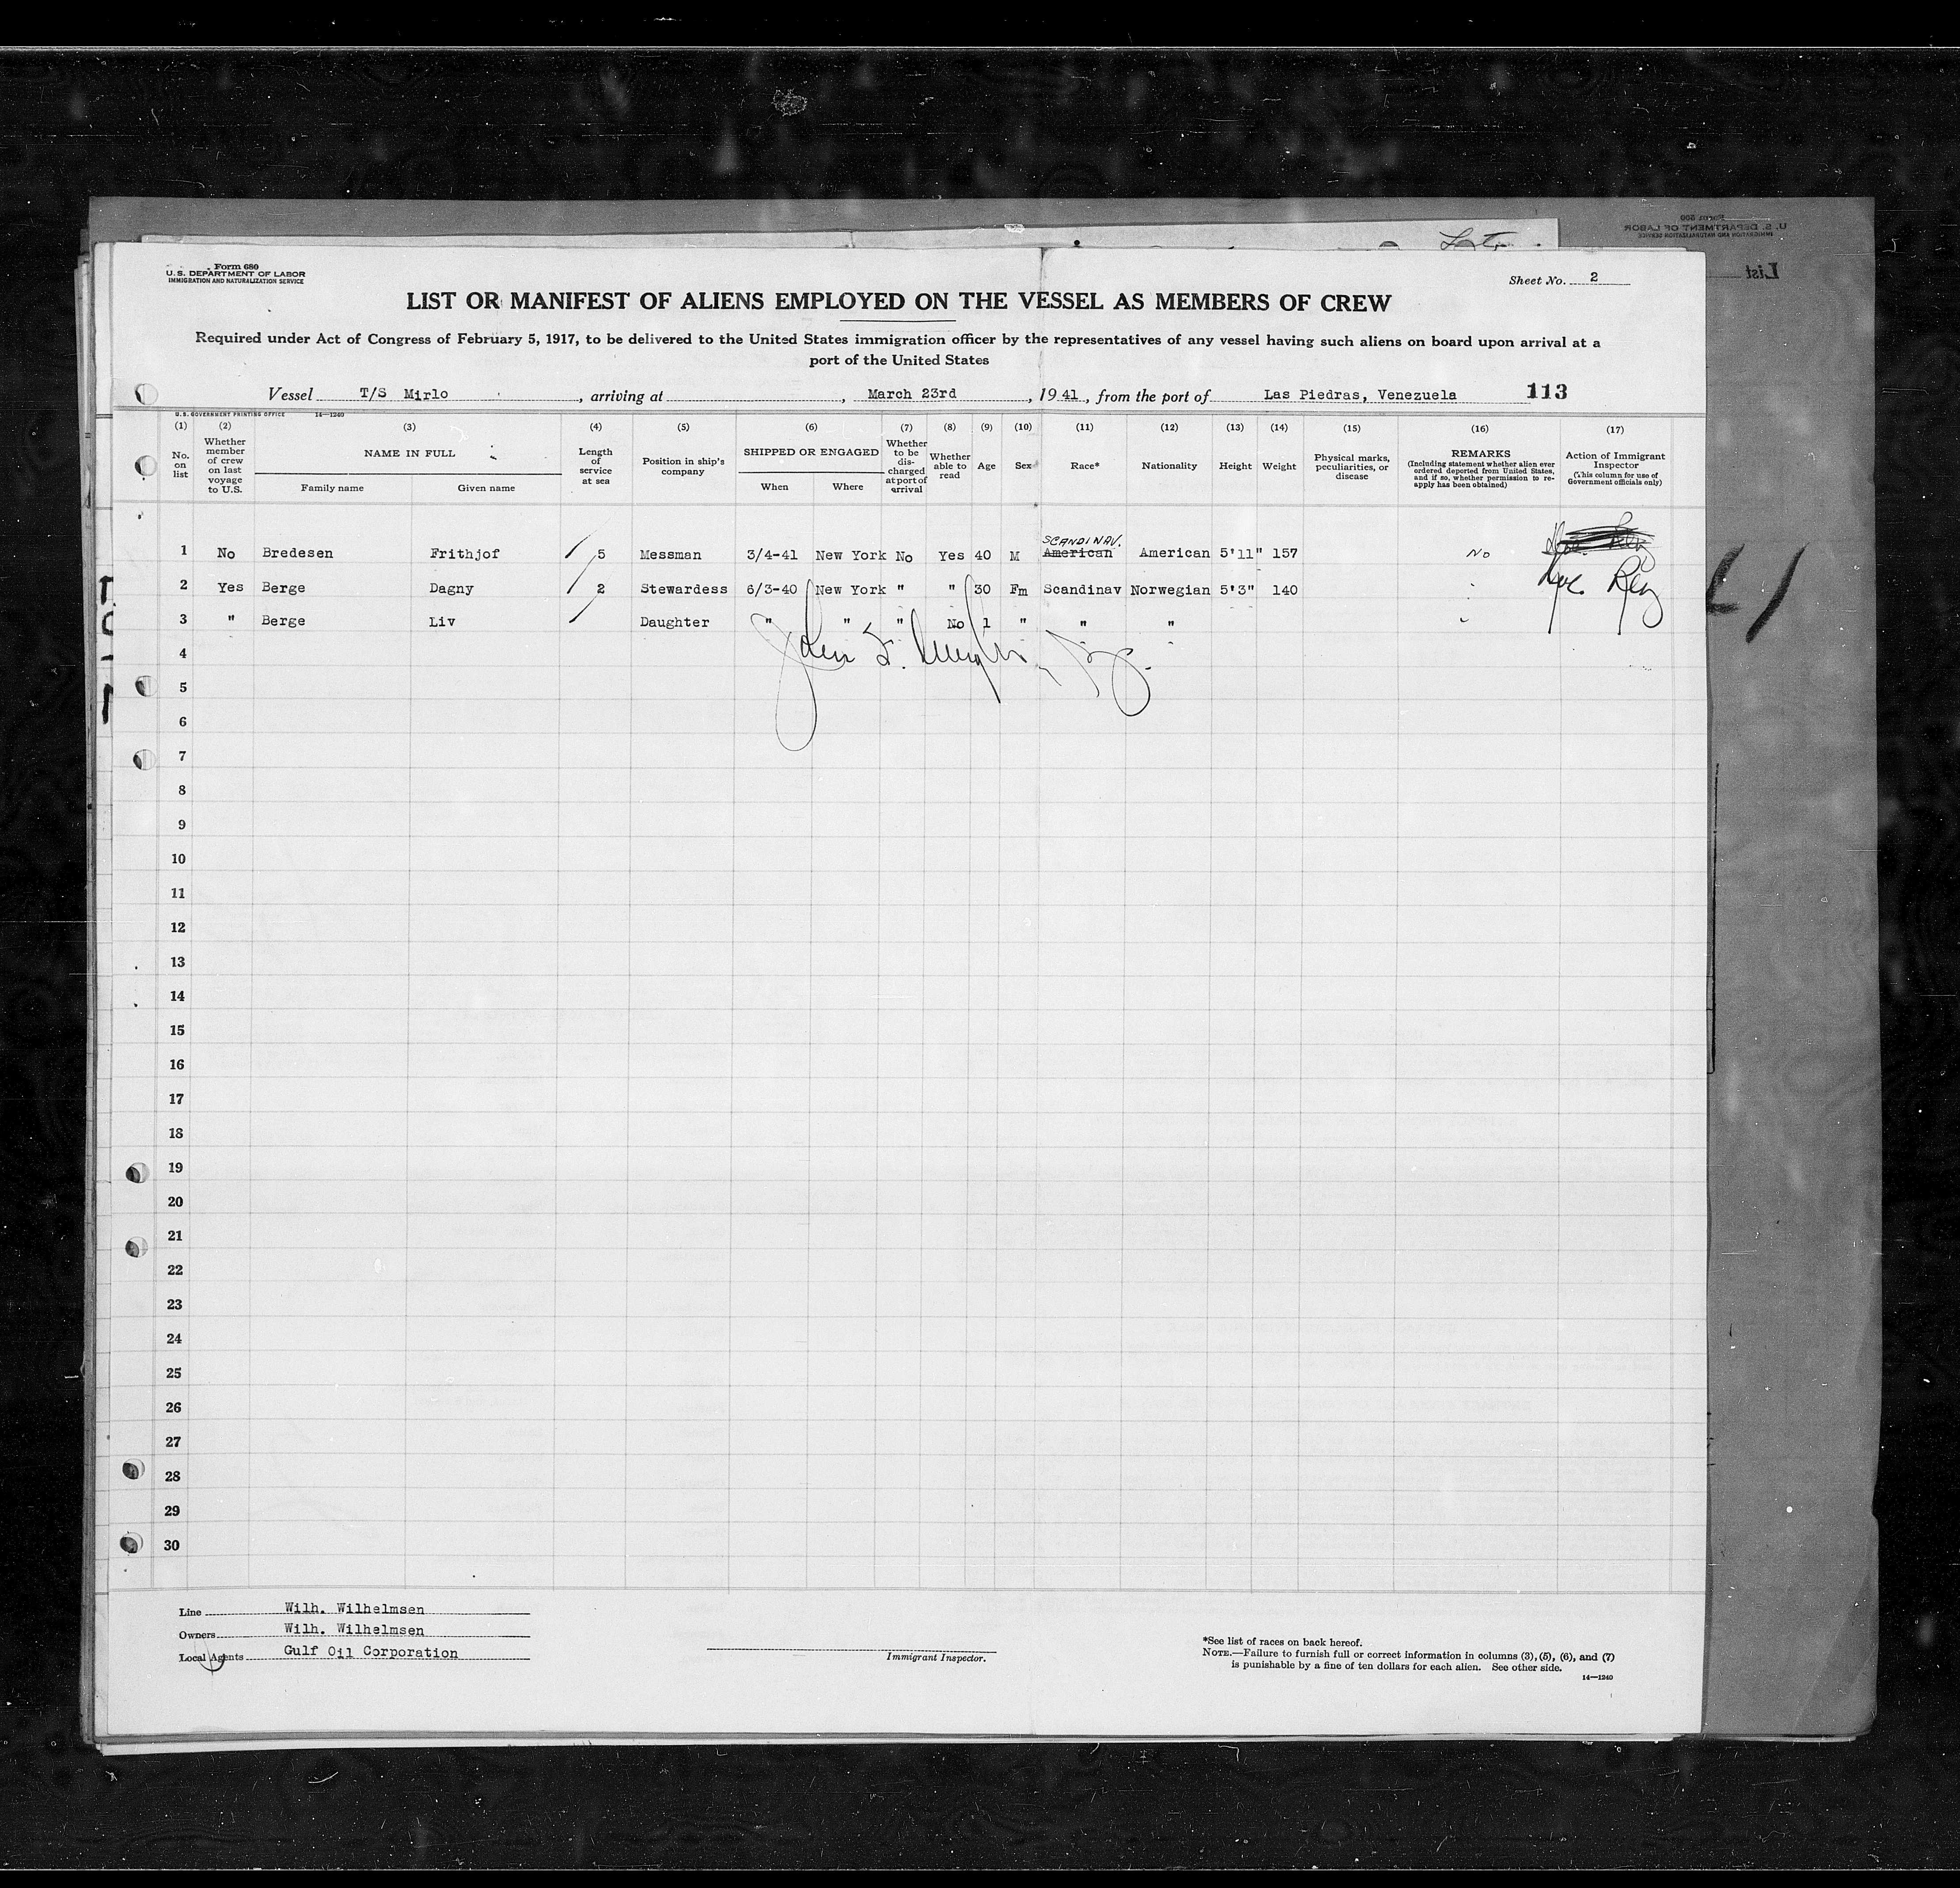 Form 680
U.S. DEPARTMENT OF LABOR
IMMIGRATION AND NATURALIZATION SERVICE
Sheet No. 2
LIST OR MANIFEST OF ALIENS EMPLOYED ON THE VESSEL AS MEMBERS OF CREW
Required under Act of Congress of February 5, 1917, to be delivered to the United States immigration officer by the representatives of any vessel having such aliens on board upon arrival at a
port of the United States
Vessel T/S Mirlo , arriving at , March 23rd , 19 41 , from the port of Las Piedras, Venezuela 113
U.S. GOVERNMENT PRINTING OFFICE 14—1240
(1) No. on list
(2) Whether member of crew on last voyage to U.S.
(3) NAME IN FULL Family name Given name
(4) Length of service at sea
(5) Position in ship's company
(6) SHIPPED OR ENGAGED When Where
(7) Whether to be discharged at port of arrival
(8) Whether able to read
(9) Age
(10) Sex
(11) Race*
(12) Nationality
(13) Height
(14) Weight
(15) Physical marks, peculiarities, or disease
(16) REMARKS (Including statement whether alien ever ordered deported from United States, and if so, whether permission to reapply has been obtained)
(17) Action of Immigrant Inspector (This column for use of Government officials only)
SCANDINAV.
1 No Bredesen Frithjof 5 Messman 3/4-41 New York No Yes 40 M American American 5'11" 157 No
2 Yes Berge Dagny 2 Stewardess 6/3-40 New York " " 30 Fm Scandinav Norwegian 5'3" 140
3 " Berge Liv Daughter " " " No 1 " " "
4
5
6
7
8
9
10
11
12
13
14
15
16
17
18
19
20
21
22
23
24
25
26
27
28
29
30
Line Wilh. Wilhelmsen
Owners Wilh. Wilhelmsen
Local Agents Gulf Oil Corporation
Immigrant Inspector.
*See list of races on back hereof.
NOTE.—Failure to furnish full or correct information in columns (3), (5), (6), and (7)
is punishable by a fine of ten dollars for each alien. See other side.
14—1240